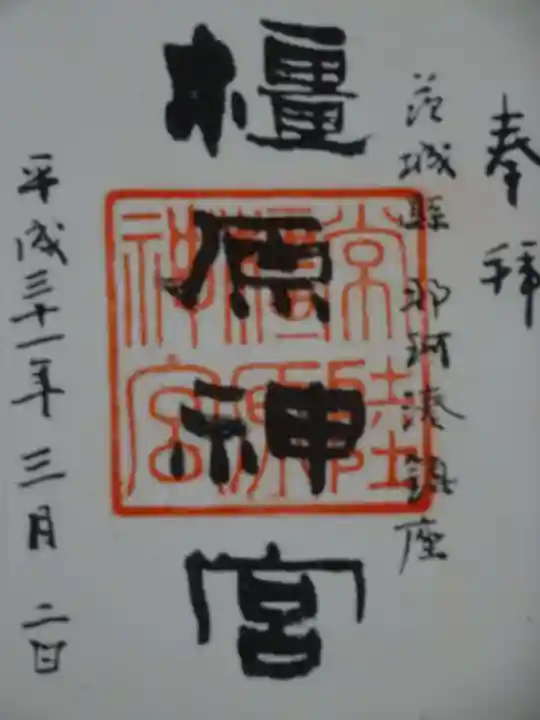 奉拝
茨城縣 那珂湊鎮座
橿原神宮
常陸
橿原
神宮
平成三十一年 三月 二日